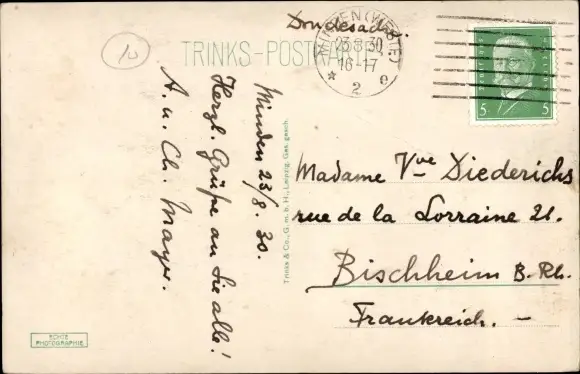 10
TRINKS-POSTKARTE
MINDEN (WESTF)
23.8.30
16-17
* 2 e
5 5
Minden 23/8. 30.
Herzl. Grüße an Sie alle!
A. u. Ch. Mayer.
Trinks & Co., G. m. b. H., Leipzig. Ges. gesch.
Madame Vve Diederichs
rue de la Lorraine 21.
Bischheim B. Rh.
Frankreich. -
ECHTE
PHOTOGRAPHIE